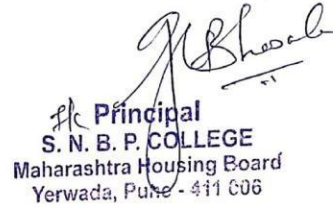 I/c Principal
S. N. B. P. COLLEGE
Maharashtra Housing Board
Yerwada, Pune - 411 006